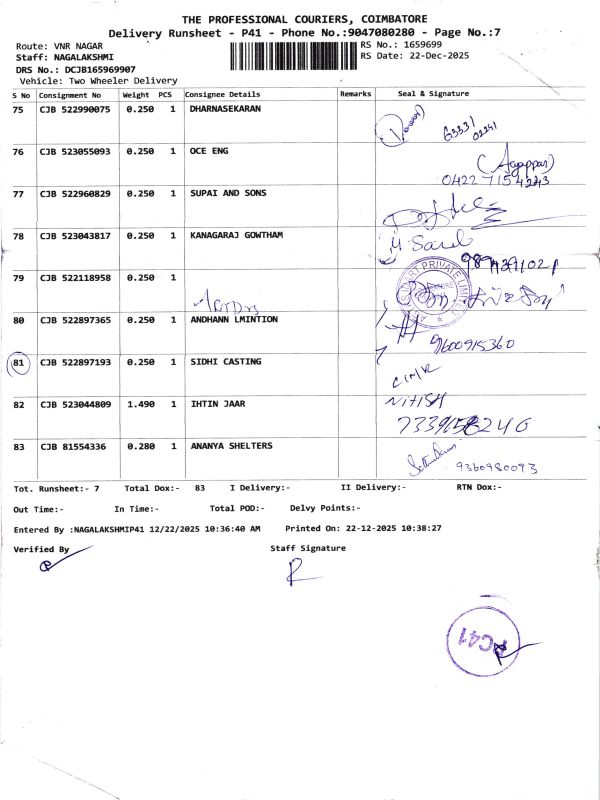 THE PROFESSIONAL COURIERS, COIMBATORE
Delivery Runsheet - P41 - Phone No.:9047080280 - Page No.:7
Route: VNR NAGAR
RS No.: 1659699
Staff: NAGALAKSHMI
RS Date: 22-Dec-2025
DRS No.: DCJB165969907
Vehicle: Two Wheeler Delivery
S No Consignment No Weight PCS Consignee Details Remarks Seal & Signature
75 CJB 522990075 0.250 1 DHARNASEKARAN
76 CJB 523055093 0.250 1 OCE ENG
(Ayappan)
0422 7154243
77 CJB 522960829 0.250 1 SUPAI AND SONS
78 CJB 523043817 0.250 1 KANAGARAJ GOWTHAM
79 CJB 522118958 0.250 1
80 CJB 522897365 0.250 1 ANDHANN LMINTION
9600915360
81 CJB 522897193 0.250 1 SIDHI CASTING
82 CJB 523044809 1.490 1 IHTIN JAAR
NITISH
83 CJB 81554336 0.280 1 ANANYA SHELTERS
9360980093
Tot. Runsheet:- 7 Total Dox:- 83 I Delivery:- II Delivery:- RTN Dox:-
Out Time:- In Time:- Total POD:- Delvy Points:-
Entered By :NAGALAKSHMIP41 12/22/2025 10:36:40 AM Printed On: 22-12-2025 10:38:27
Verified By Staff Signature